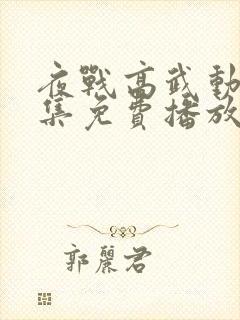 夜戰高武動
集免費播放
郭麗君